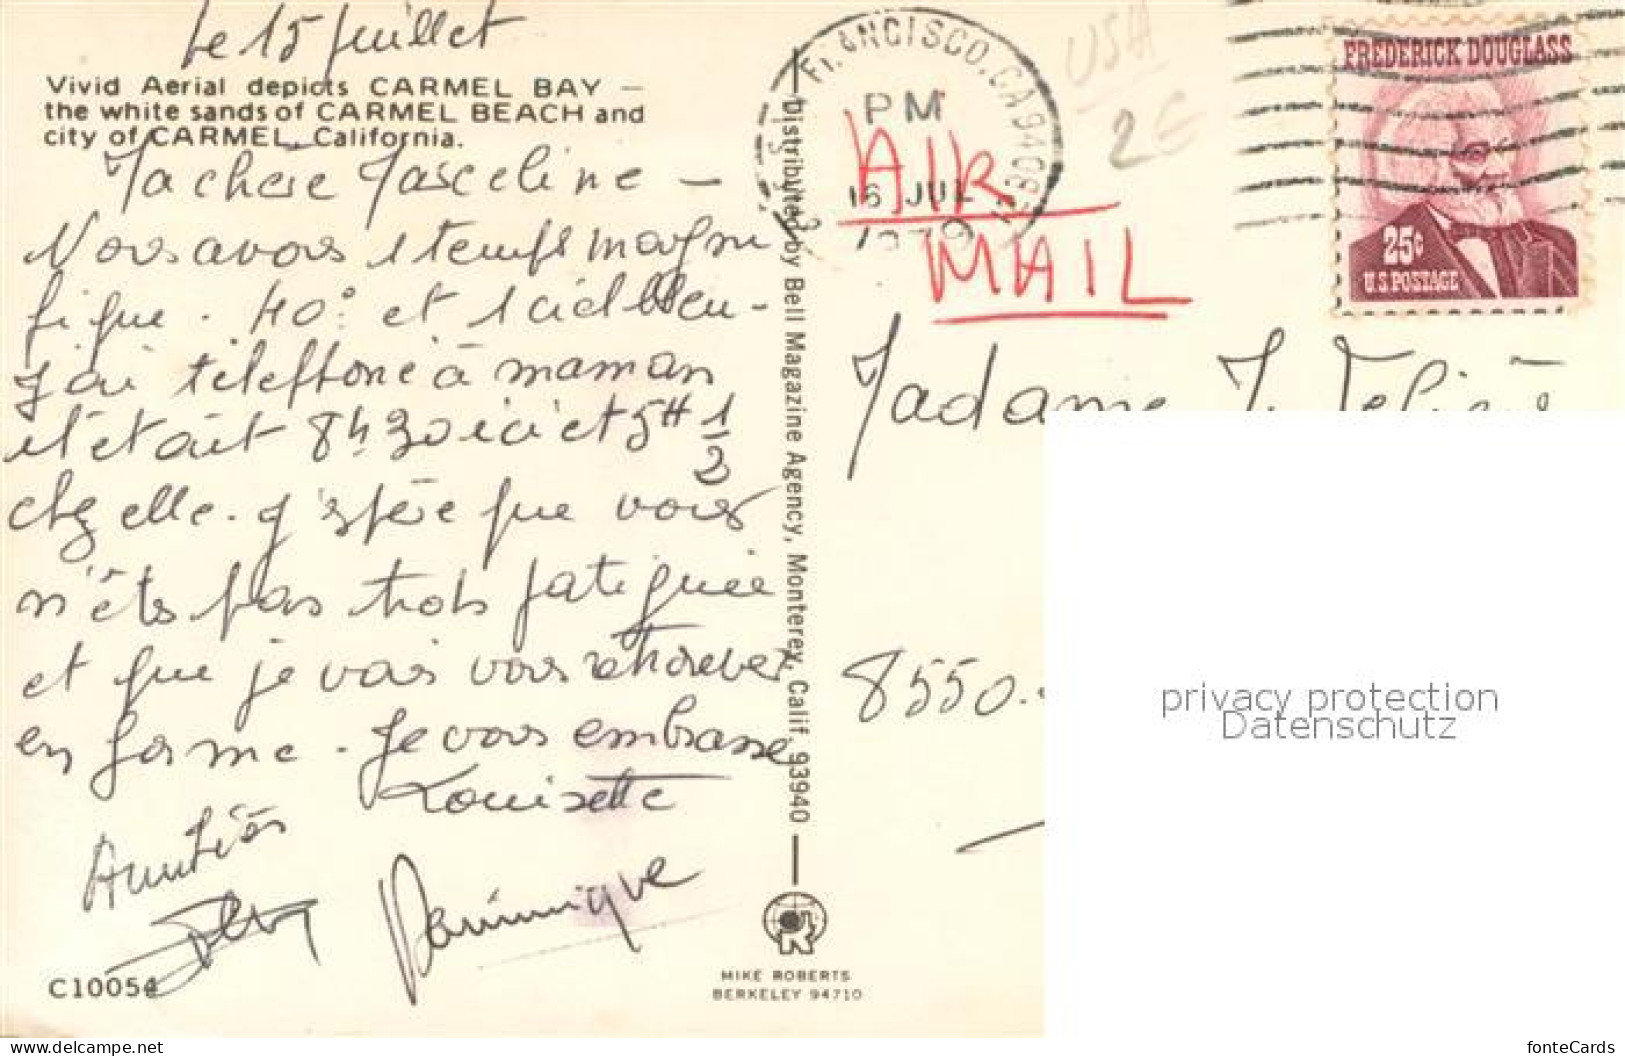 Le 15 juillet
Vivid Aerial depicts CARMEL BAY –
the white sands of CARMEL BEACH and
city of CARMEL, California.
Ma chère Marceline –
Nous avons 1 temps magni
fique. 40° et 1 ciel bleu -
J'ai téléphoné à maman
il était 8h30 ici et 5H 1/2
chez elle. J'espère que vous
n'êtes pas trop fatiguée
et que je vais vous retrouver
en forme. Je vous embrasse
Louisette
Amitiés
Dominique
C10054
Distributed by Bell Magazine Agency, Monterey, Calif. 93940
MIKE ROBERTS
BERKELEY 94710
FRANCISCO, CA 940
PM
16 JUL
1979
USA
2€
AIR
MAIL
FREDERICK DOUGLASS
25¢
U.S. POSTAGE
Madame J.
8550.
privacy protection
Datenschutz
www.delcampe.net
fonteCards